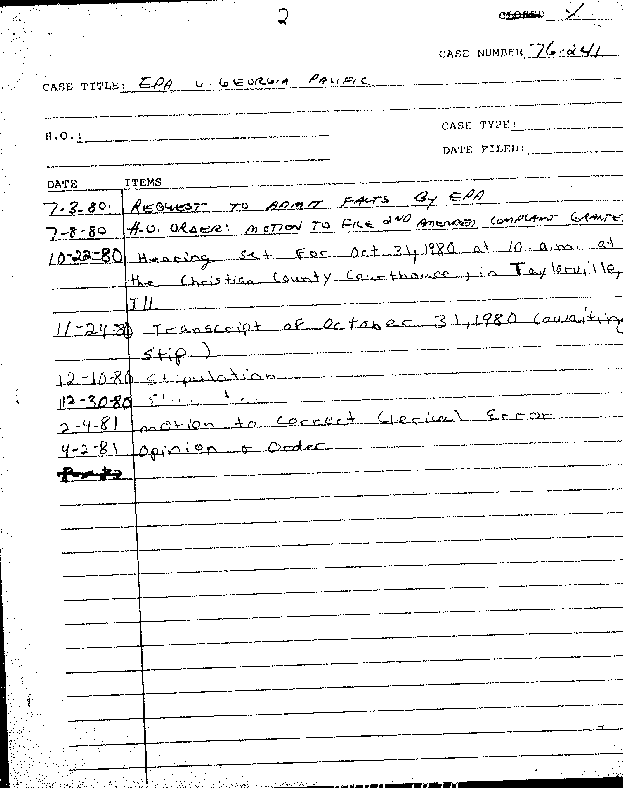 2
CLOSED
CASE NUMBER 76-241
CASE TITLE: EPA v GEORGIA PACIFIC
H.O.:
CASE TYPE:
DATE FILED:
DATE ITEMS
7-3-80. REQUEST TO ADMIT FACTS By EPA
7-8-80 H.O. ORDER: MOTION TO FILE 2ND AMENDED COMPLAINT GRANTE
10-22-80 Hearing set for Oct 31, 1980 at 10 a.m. at
the Christian County Courthouse, in Taylorville,
Ill
11-24-80 Transcript of October 31, 1980 (awaiting
stip)
12-10-80 Stipulation
12-30-80
2-4-81 motion to correct Clerical Error
4-2-81 Opinion & Order